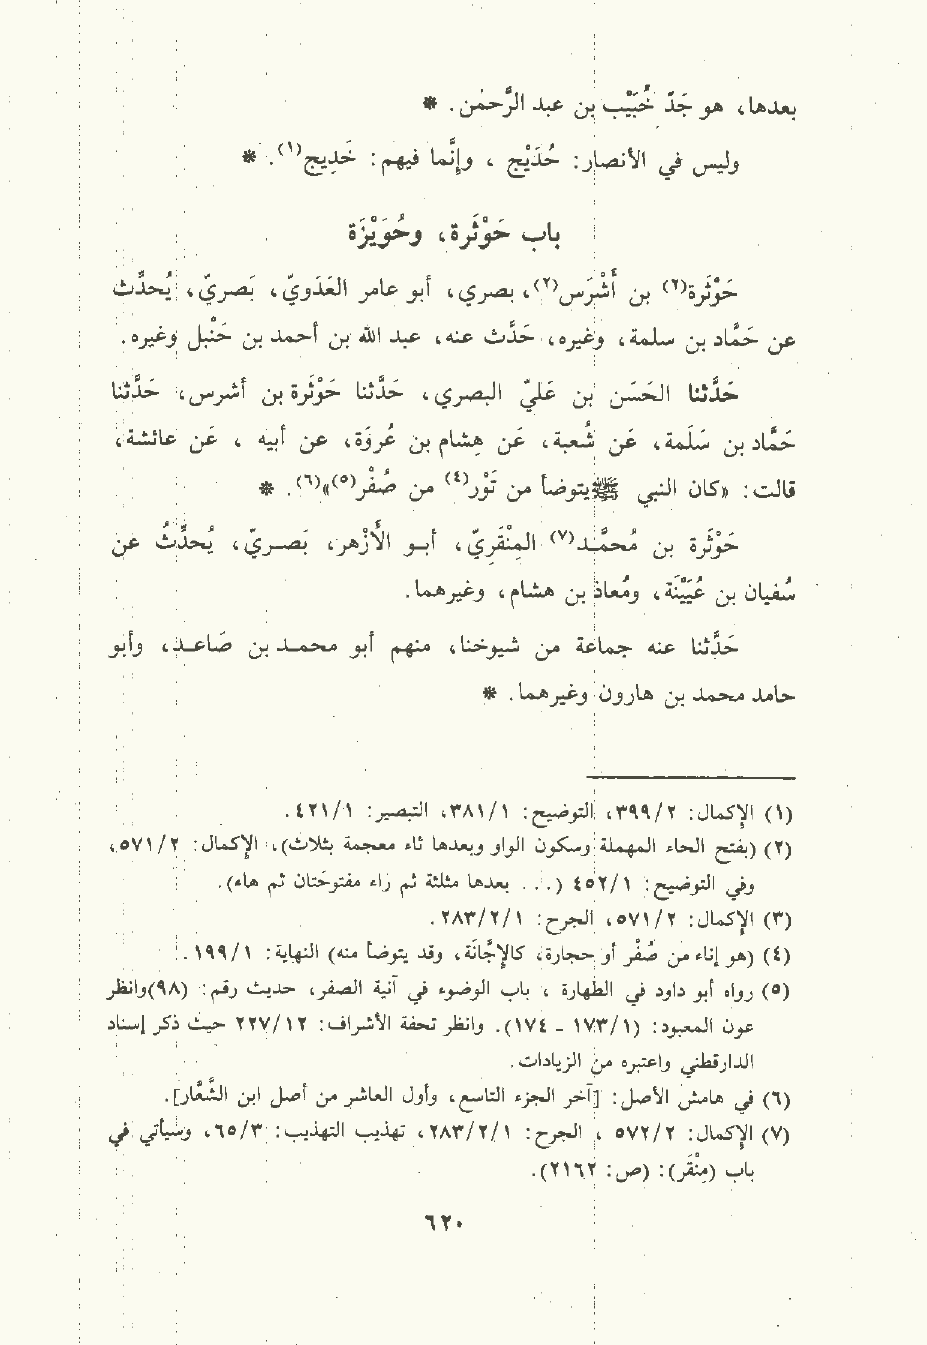 بعدها، وهو جَدّ خُبَيْب بن عبد الرَّحمٰن. *
وليس في الأنصار: حُدَيْج ، وإنَّما فيهم: خَدِيج(١). *
باب حَوْثَرة، وحُوَيْزَة
حَوْثَرة(٢) بن أَشْرَس(٢)، بصري، أبو عامر العَدَويّ، بَصريّ، يُحدِّث
عن حَمَّاد بن سلمة، وغيره، حَدَّث عنه، عبد الله بن أحمد بن حَنْبل وغيره.
حَدَّثنا الحَسَن بن عَليّ البصري، حَدَّثنا حَوْثَرة بن أشرس، حَدَّثنا
حَمَّاد بن سَلَمة، عَن شُعبة، عَن هِشام بن عُرْوَة، عن أبيه ، عَن عائشة،
قالت: «كان النبي ﷺ يتوضأ من تَوْر(٤) من صُفْر(٥)»(٦). *
حَوْثَرة بن مُحمَّد(٧) المِنْقَريّ، أبو الأزْهر، بَصريّ، يُحدِّث عن
سُفيان بن عُيَيْنَة، ومُعاذ بن هشام، وغيرهما.
حَدَّثنا عنه جماعة من شيوخنا، منهم أبو محمد بن صَاعد، وأبو
حامد محمد بن هارون وغيرهما. *
(١) الإكمال: ٣٩٩/٢، التوضيح: ٣٨١/١، التبصير: ٤٢١/١.
(٢) (بفتح الحاء المهملة وسكون الواو وبعدها ثاء معجمة بثلاث)، الإكمال: ٥٧١/٢،
وفي التوضيح: ٤٥٢/١ (... بعدها مثلثة ثم راء مفتوحتان ثم هاء).
(٣) الإكمال: ٥٧١/٢، الجرح: ٢٨٣/٢/١.
(٤) (هو إناء من صُفْر أو حجارة، كالإجَّانَة، وقد يتوضأ منه) النهاية: ١٩٩/١.
(٥) رواه أبو داود في الطهارة ، باب الوضوء في آنية الصفر، حديث رقم: (٩٨)وانظر
عون المعبود: (١٧٣/١ - ١٧٤). وانظر تحفة الأشراف: ٢٢٧/١٢ حيث ذكر إسناد
الدارقطني واعتبره من الزيادات.
(٦) في هامش الأصل: [آخر الجزء التاسع، وأول العاشر من أصل ابن الشَّعَّار].
(٧) الإكمال: ٥٧٢/٢ ، الجرح: ٢٨٣/٢/١، تهذيب التهذيب: ٦٥/٣، وسيأتي في
باب (مِنْقَر): (ص: ٢١٦٢).
٦٢٠